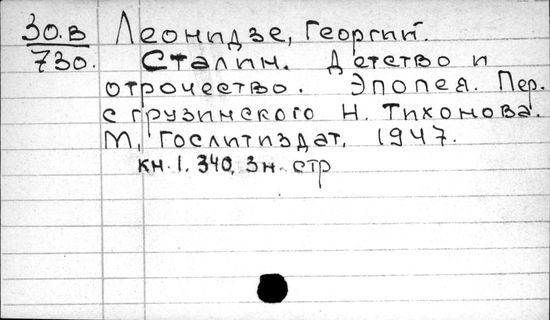 30.в Леонидзе, Георгий.
730. Сталин. Детство и
отрочество. Эпопея. Пер.
с грузинского Н. Тихонова.
М, Гослитиздат, 1947.
кн. 1. 340, 3 н. стр